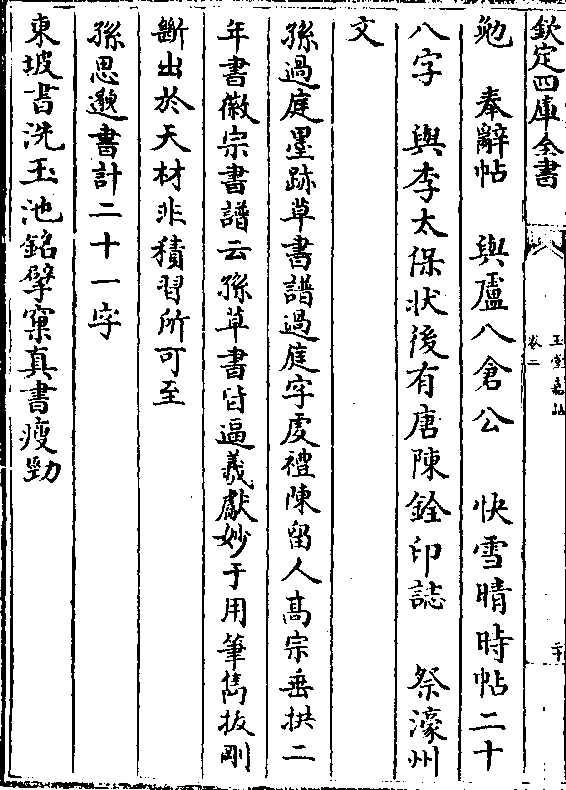 欽定四庫全書
玉堂嘉話
卷二
勉　奉辭帖　與盧八倉公　快雪晴時帖二十
八字　與李太保狀後有唐陳銓印誌　祭濠州
文
孫過庭墨跡草書譜過庭字䖍禮陳留人高宗垂拱二
年書徽宗書譜云孫草書皆逼羲獻妙于用筆雋拔剛
斷出於天材非積習所可至
孫思邈書計二十一字
東坡書洗玉池銘擘窠真書瘦勁